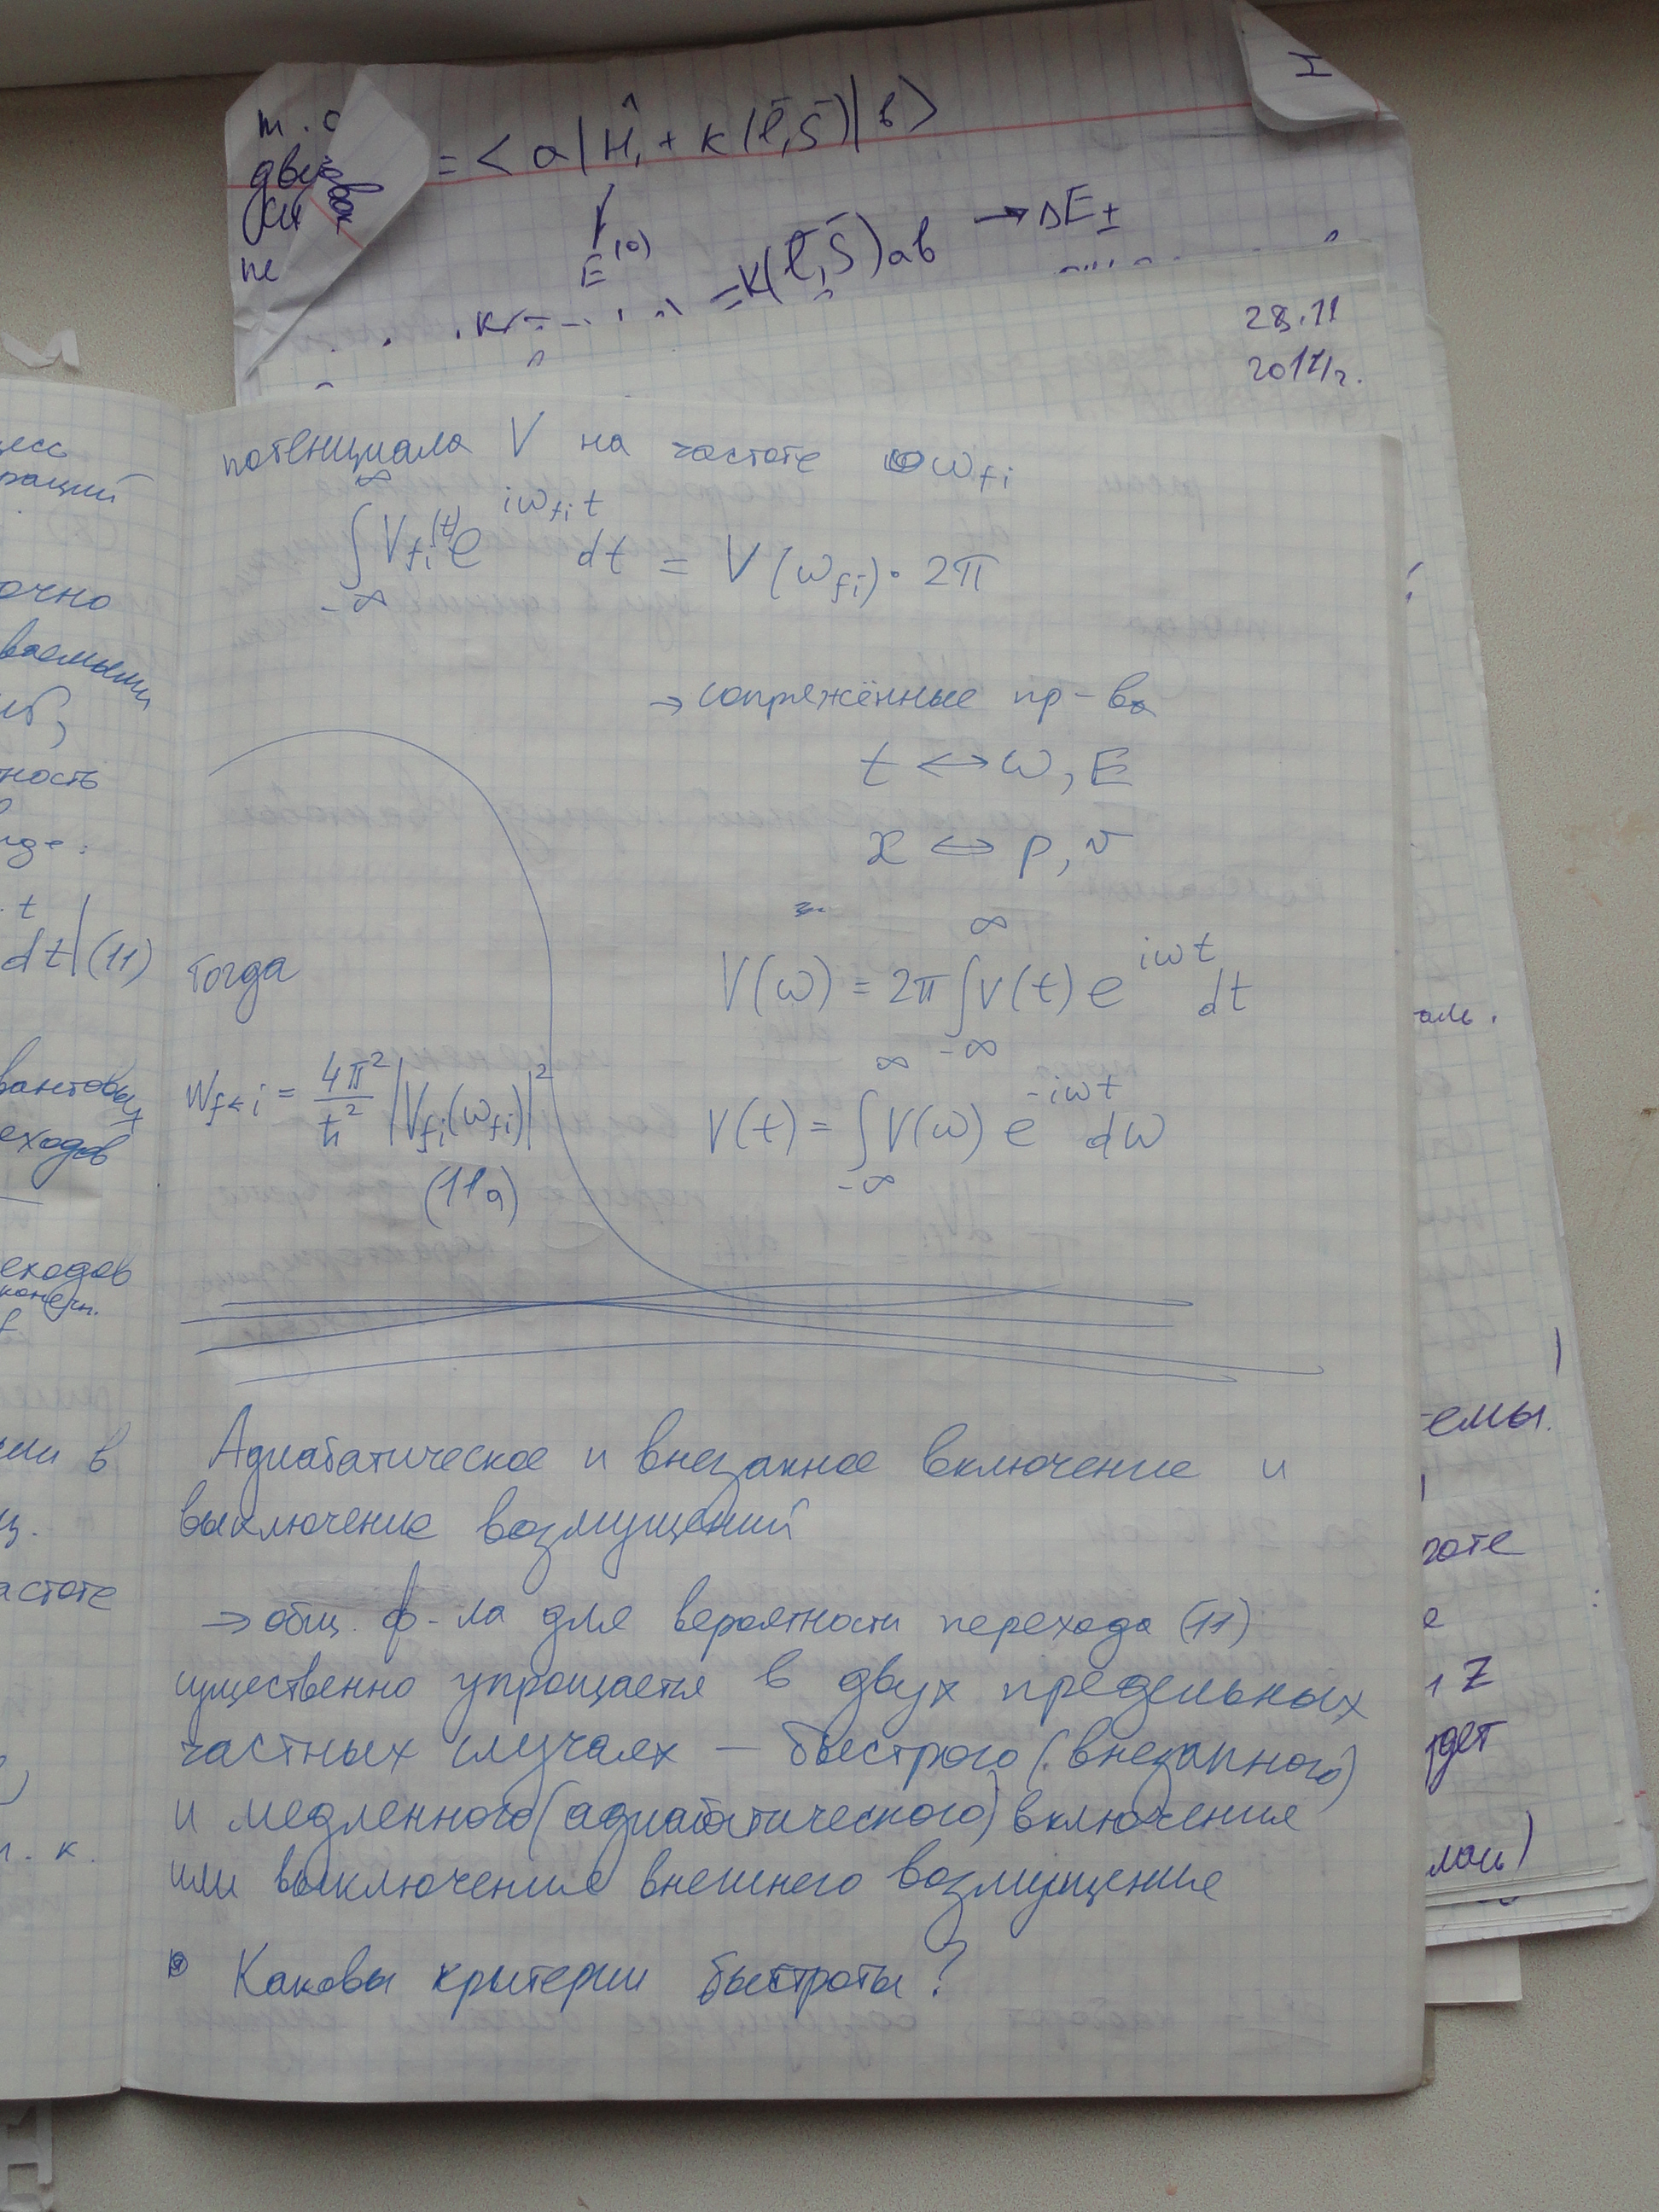 = < a | Ĥ₁ + к(l̄,S̄) | b >
E⁽⁰⁾
= к(l̄,S̄)ab → ΔE±
28.11
потенциала V на частоте ω_fi
∫_{-∞}^{∞} V_fi(t) e^{iω_fi t} dt = V(ω_fi) · 2π
→ сопряжённые пр-ва
t ↔ ω, E
x ↔ p, v
Тогда
V(ω) = 2π ∫_{-∞}^{∞} V(t) e^{iωt} dt
W_{f←i} = 4π²/ħ² |V_fi(ω_fi)|²
(11а)
V(t) = ∫_{-∞}^{∞} V(ω) e^{-iωt} dω
Адиабатическое и внезапное включение и
выключение возмущений
→ общ. ф-ла для вероятности перехода (11)
существенно упрощается в двух предельных
частных случаях – быстрого (внезапного)
и медленного (адиабатического) включения
или выключения внешнего возмущения
Каковы критерии быстроты?
очно
ность
dt| (11)
еходов
еходов
конечн.
ии в
астоте
т.к.
емы.
Z